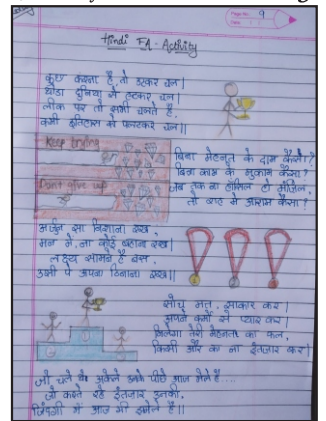 Page No. 9
Date
Hindi FA - Activity
कुछ करना है, तो डटकर चल।
थोडा दुनिया से हटकर चल।
लीक पर तो सभी चलते है,
कभी इतिहास को पलटकर चल।।
Keep trying
Don't give up
बिना मेहनत के दाम कैसा?
बिना काम के मुकाम कैसा?
जब तक ना हासिल हो मंजिल,
तो राह में आराम कैसा?
अर्जुन सा निशाना रख,
मन में, ना कोई बहाना रख।
लक्ष्य सामने है बस,
उसी पे अपना ठिकाना रख।।
सोच मत, साकार कर।
अपने कर्मो से प्यार कर।
मिलेगा तेरी मेहनत का फल,
किसी और का ना इंतजार कर।
जो चले थे अकेले उनके पीछे आज मेले है....
जो करते रहे इंतजार उनकी,
जिंदगी में आज भी झमेले है।।